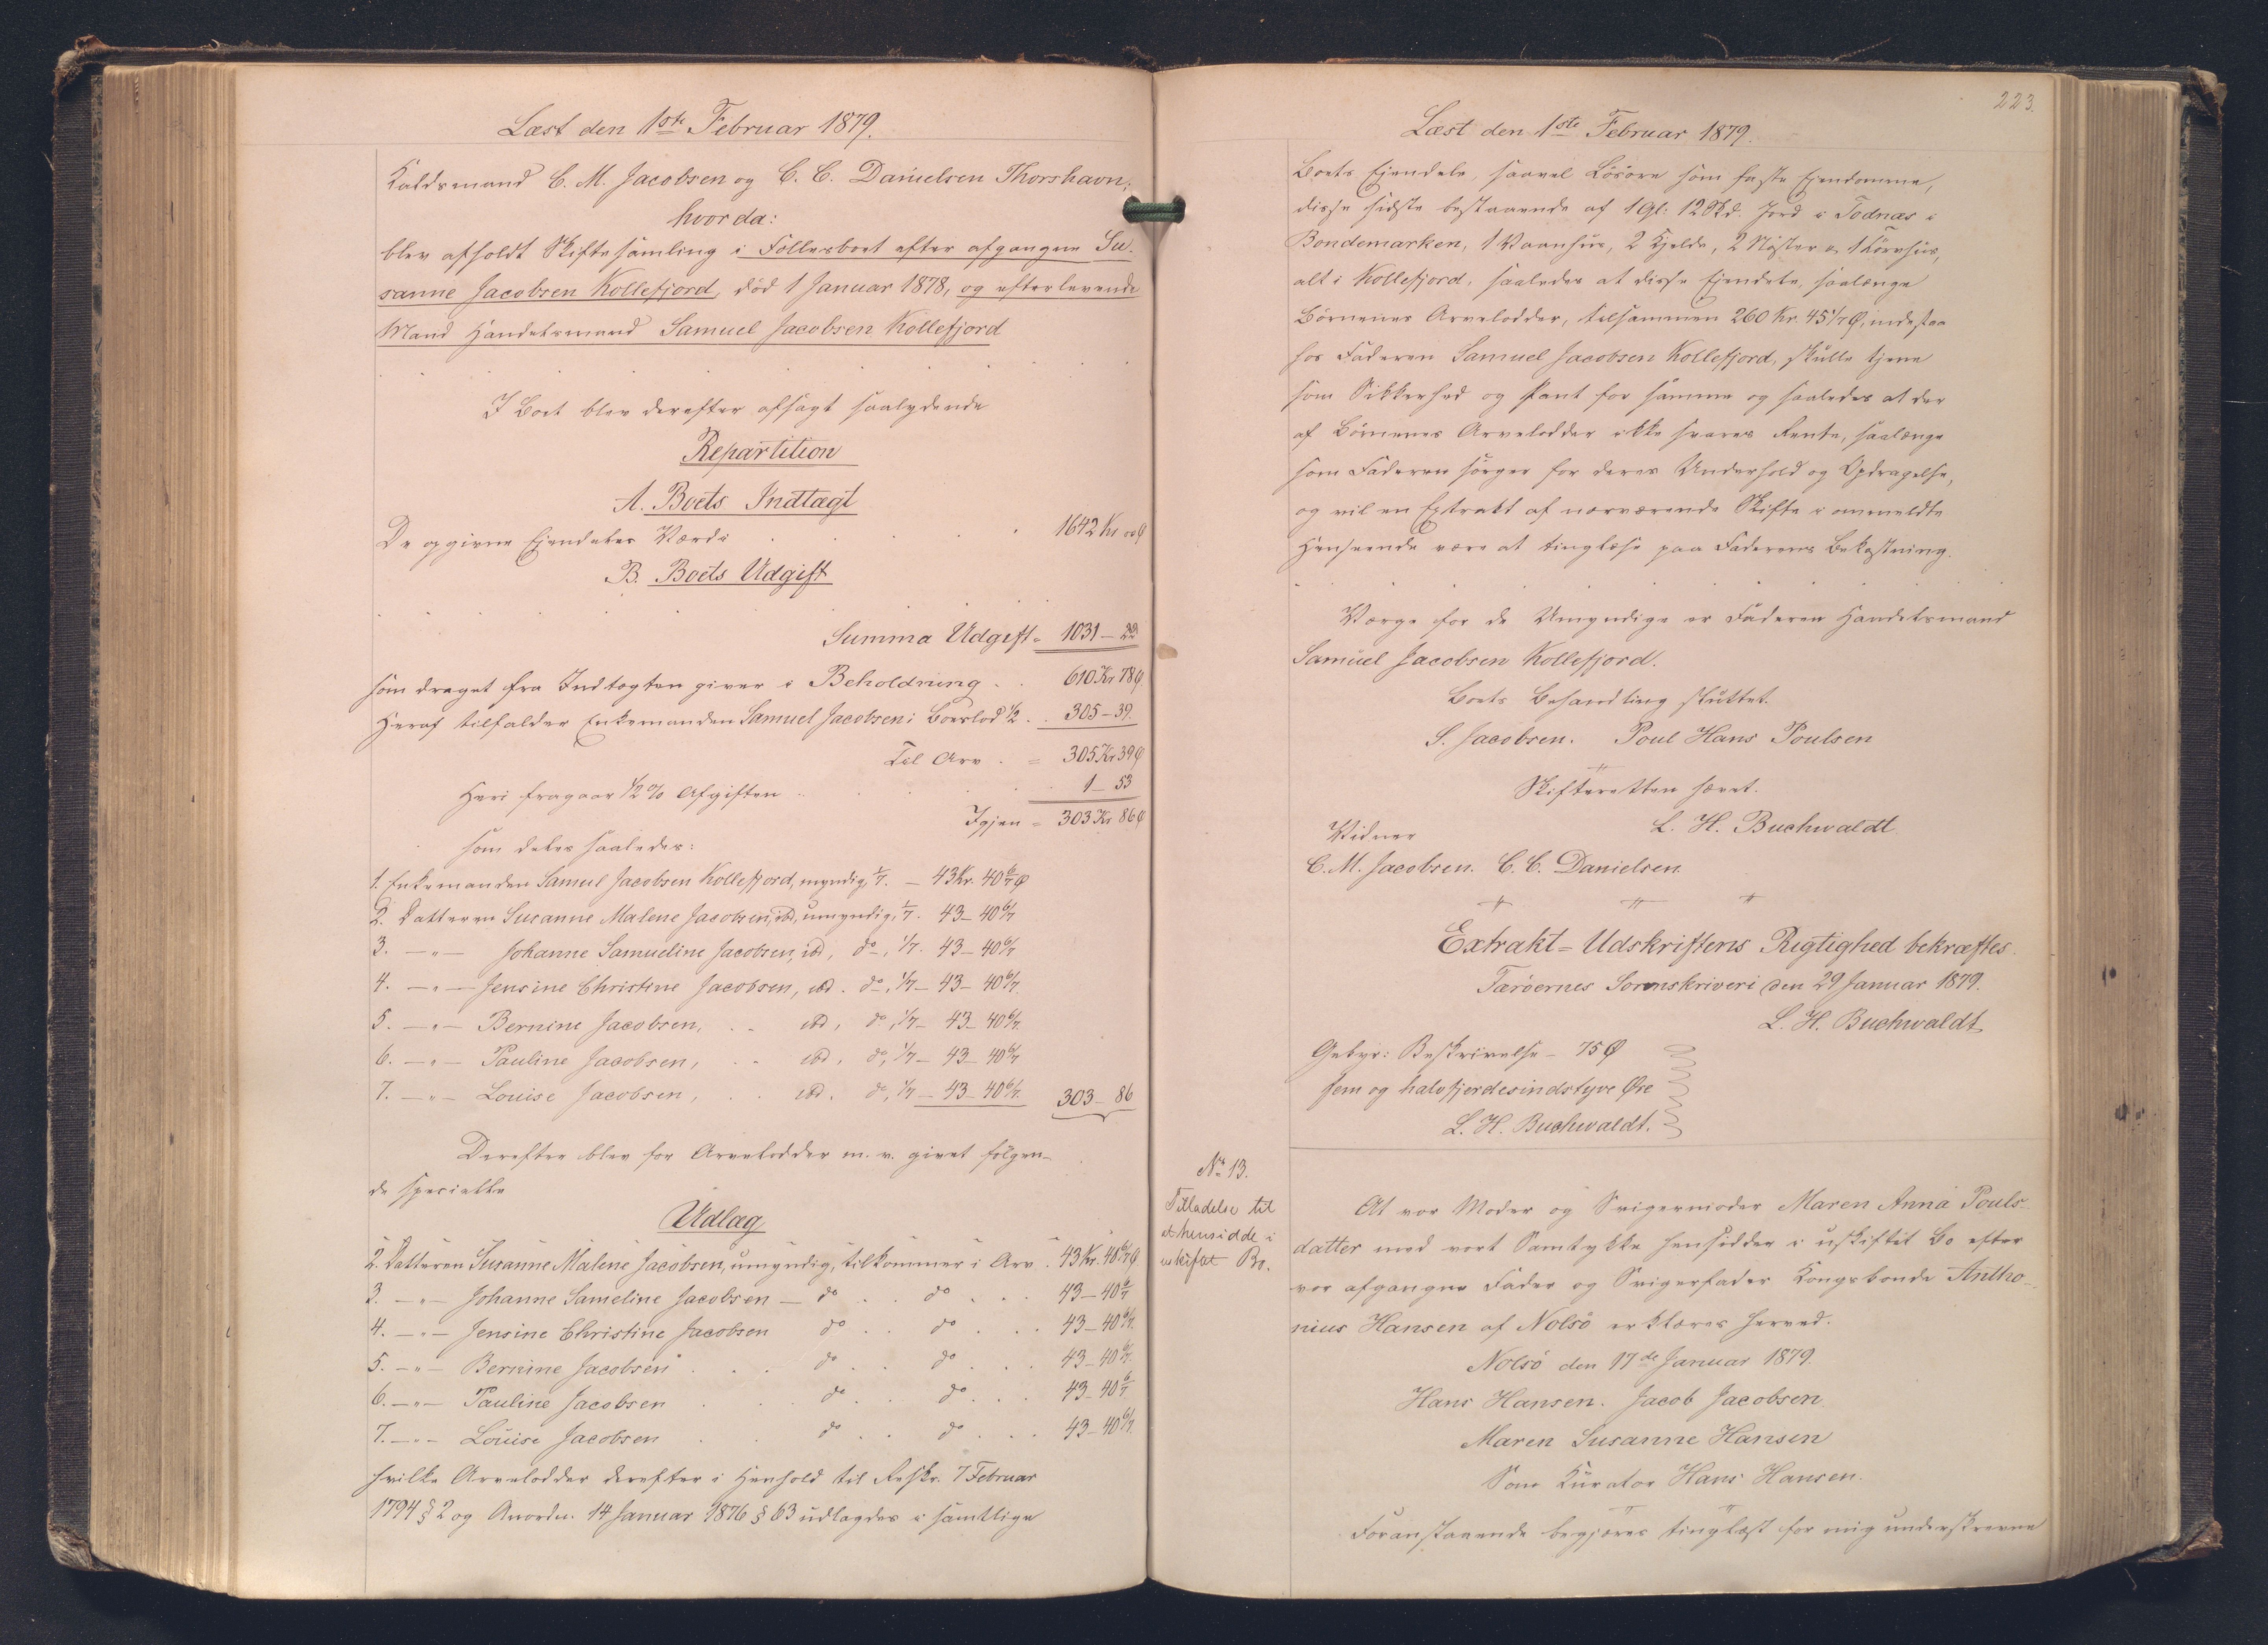 Læst den 1ste Februar 1879.
Kaldsmand C. M. Jacobsen og C. C. Danielsen Thorshavn;
hvor da:
blev afholdt Skiftesamling i Fællesboet efter afgangne Su-
sanne Jacobsen Kollefjord, død 1 Januar 1878, og efterlevende
Mand Handelsmand Samuel Jacobsen Kollefjord
I Boet blev derefter afsagt saalydende
Repartition
A. Boets Indtægt
De opgivne Ejendeles Værdi 1642 Kr ooØ
B. Boets Udgift
Summa Udgift = 1031 – 22
som draget fra Indtægten giver i Beholdning 610 Kr 78 Ø.
Heraf tilfalder Enkemanden Samuel Jacobsen: Boeslod ½ . . 305 – 39.
Til Arv . = 305 Kr 39 Ø
Heri fragaar ½ % Afgiften 1 – 53
Igjen = 303 Kr 86 Ø
som deles saaledes:
1. Enkemanden Samuel Jacobsen Kollefjord, myndig, 1/7. – 43 Kr. 40 6/7 Ø
2. Datteren Susanne Malene Jacobsen, ibd, umyndig, 1/7. 43 – 40 6/7
3. –„– Johanne Samueline Jacobsen, ibd, do, 1/7. 43 – 40 6/7
4. –„– Jensine Christine Jacobsen, ibd. do, 1/7 – 43 – 40 6/7
5. –„– Bernine Jacobsen, . . ibd, do, 1/7 – 43 – 40 6/7
6. –„– Pauline Jacobsen, . . ibd, do, 1/7 – 43 – 40 6/7
7. –„– Louise Jacobsen, . . ibd. do, 1/7 – 43 – 40 6/7. 303 – 86
Derefter blev for Arvelodder m. v. givet følgen-
de specielle
Udlæg
2. Datteren Susanne Malene Jacobsen, umyndig, tilkommer i Arv . 43 Kr. 40 6/7 Ø
3. –„– Johanne Sameline Jacobsen – do . . do . . . 43 – 40 6/7
4. –„– Jensine Christine Jacobsen do . . do . . . 43 – 40 6/7
5. –„– Bernine Jacobsen . . . do . . do . . . 43 – 40 6/7
6. –„– Pauline Jacobsen . . do . . do . . . 43 – 40 6/7
7. –„– Louise Jacobsen . . do . . do . . . 43 – 40 6/7.
hvilke Arvelodder derefter i Henhold til Reskr. 7 Februar
1794 § 2 og Anordn. 14 Januar 1876 § 63 udlagdes i samtlige
223.
Læst den 1ste Februar 1879.
Boets Ejendele, saavel Løsøre som faste Ejendomme,
disse sidste bestaaende af 1 Gl. 12 Skd. Jord i Todnæs i
Bondemarken, 1 Vaanhus, 2 Hjelde, 2 Nøster og 1 Kørnhus,
alt i Kollefjord, saaledes at disse Ejendele, saalænge
Børnenes Arvelodder, tilsammen 260 Kr. 45 1/7 Ø, indestaa
hos Faderen Samuel Jacobsen Kollefjord, skulle tjene
som Sikkerhed og Pant for samme og saaledes at der
af Børnenes Arvelodder ikke svares Rente, saalænge
som Faderen sørger for deres Underhold og Opdragelse,
og vil en Extrakt af nærværende Skifte i anmeldte
Henseende være at tinglæse paa Faderens Bekostning.
Værge for de Umyndige er Faderen Handelsmand
Samuel Jacobsen Kollefjord.
Boets Behandling sluttet.
S. Jacobsen. Poul Hans Poulsen
Skifteretten hævet.
L. H. Buchwaldt
Vidner
C. M. Jacobsen. C. C. Danielsen
Extrakt-Udskriftens Rigtighed bekræftes.
Færøernes Sorenskriveri den 29 Januar 1879.
L. H. Buchwaldt
Gebyr: Beskrivelse – 75 Ø
fem og halvfjerdesindstyve Øre
L. H. Buchwaldt.
No 13.
Tilladelse til
at hensidde i
uskiftet Bo.
At vor Moder og Svigermoder Maren Anna Pouls-
datter med vort Samtykke hensidder i uskiftet Bo efter
vor afgangne Fader og Svigerfader Kongsbonde Antho-
nius Hansen af Nolsø erklæres herved.
Nolsø den 17de Januar 1879.
Hans Hansen. Jacob Jacobsen.
Maren Susanne Hansen
Som Kurator Hans Hansen.
Foranstaaende begjæres tinglæst for mig underskrevne